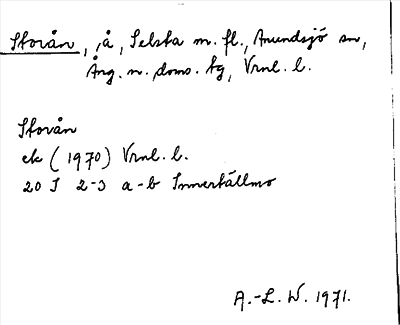 Storån, å, Selsta m. fl., Anundsjö sn,
Ång. n. doms. tg, Vrnl. l.
Storån
ek (1970) Vrnl. l.
20 I 2-3 a-b Innertällmo
A.-L. W. 1971.